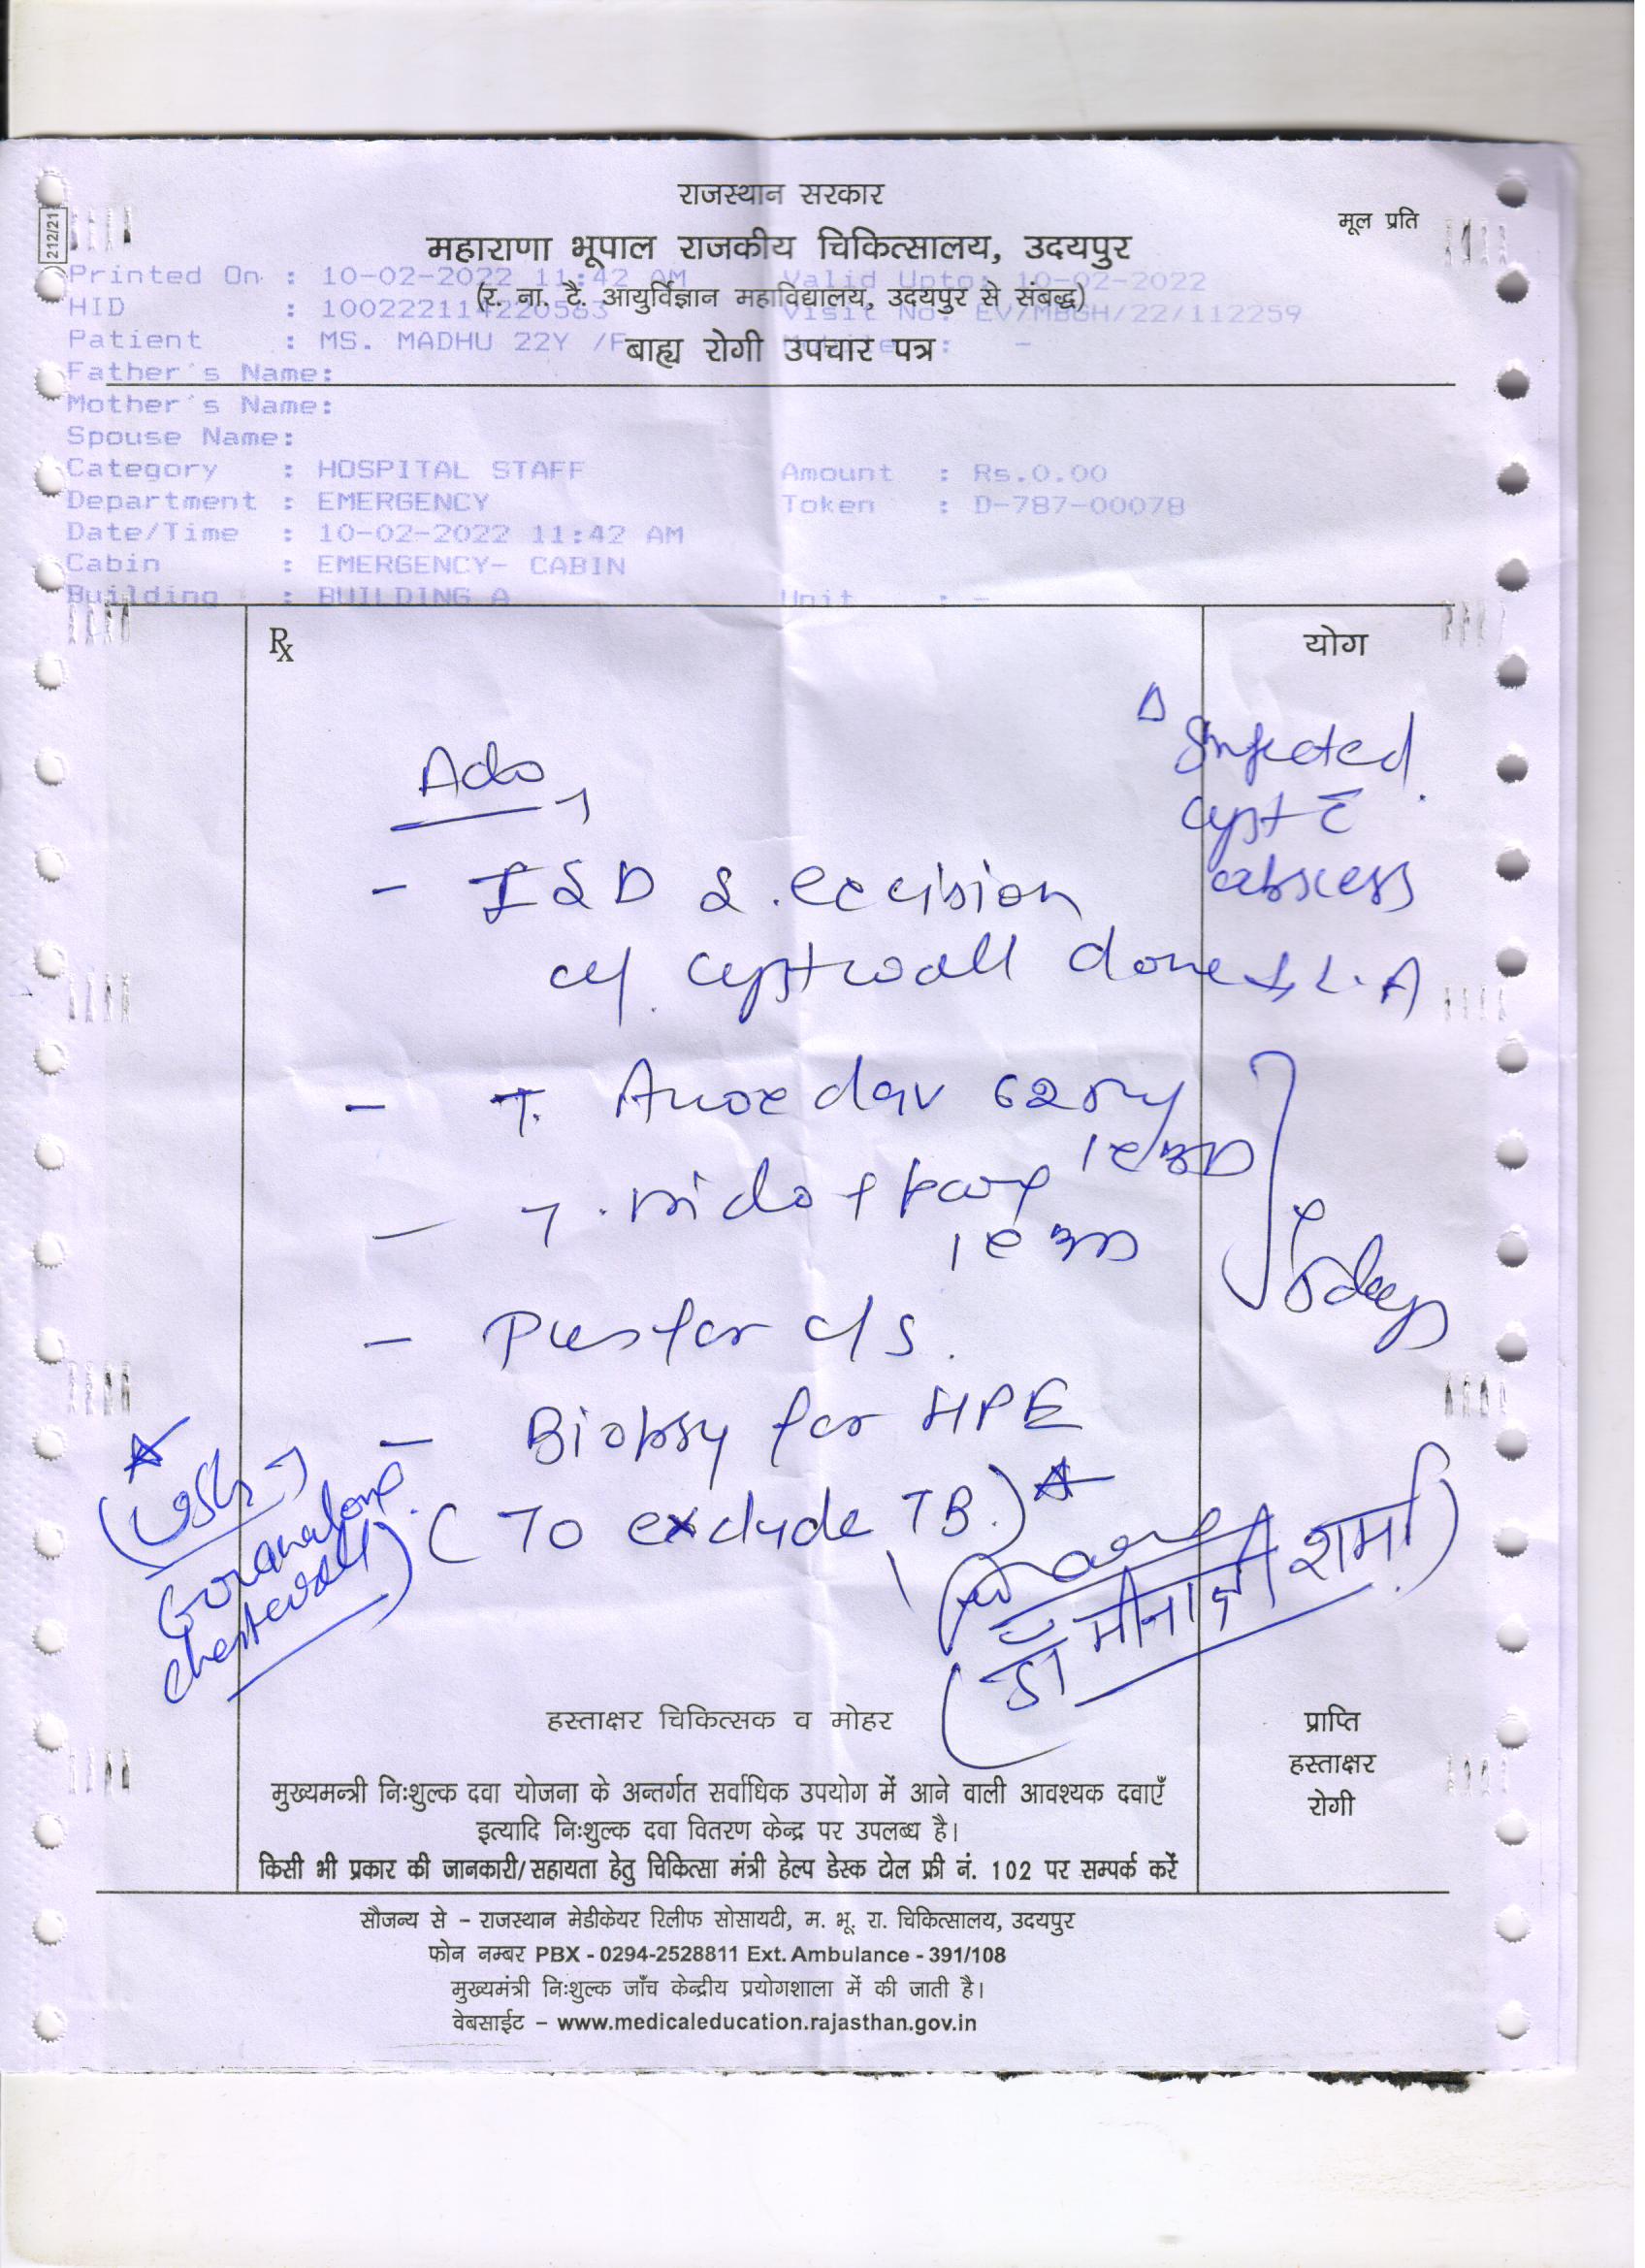 राजस्थान सरकार
मूल प्रति
212/21
महाराणा भूपाल राजकीय चिकित्सालय, उदयपुर
Printed On : 10-02-2022 11:42 AM Valid Upto: 10-02-2022
(र. ना. टै. आयुर्विज्ञान महाविद्यालय, उदयपुर से संबद्ध)
HID : 100222114220563 Visit No: EV/MBGH/22/112259
Patient : MS. MADHU 22Y /F : -
बाह्य रोगी उपचार पत्र
Father's Name:
Mother's Name:
Spouse Name:
Category : HOSPITAL STAFF Amount : Rs.0.00
Department : EMERGENCY Token : D-787-00078
Date/Time : 10-02-2022 11:42 AM
Cabin : EMERGENCY- CABIN
Building : BUILDING A Unit : -
Rx योग
Δ Infected
cyst c̄
abscess
Adv
- I & D & excision
of cyst wall done L.A
- T. 625mg
1
- T.
1
5 days
- Pus for c/s.
- Biopsy for HPE
(To exclude TB.)
chest wall)
(डॉ मीनाक्षी शर्मा)
हस्ताक्षर चिकित्सक व मोहर
प्राप्ति
हस्ताक्षर
रोगी
मुख्यमन्त्री निःशुल्क दवा योजना के अन्तर्गत सर्वाधिक उपयोग में आने वाली आवश्यक दवाएँ
इत्यादि निःशुल्क दवा वितरण केन्द्र पर उपलब्ध है।
किसी भी प्रकार की जानकारी/सहायता हेतु चिकित्सा मंत्री हेल्प डेस्क टोल फ्री नं. 102 पर सम्पर्क करें
सौजन्य से - राजस्थान मेडीकेयर रिलीफ सोसायटी, म. भू. रा. चिकित्सालय, उदयपुर
फोन नम्बर PBX - 0294-2528811 Ext. Ambulance - 391/108
मुख्यमंत्री निःशुल्क जाँच केन्द्रीय प्रयोगशाला में की जाती है।
वेबसाईट - www.medicaleducation.rajasthan.gov.in